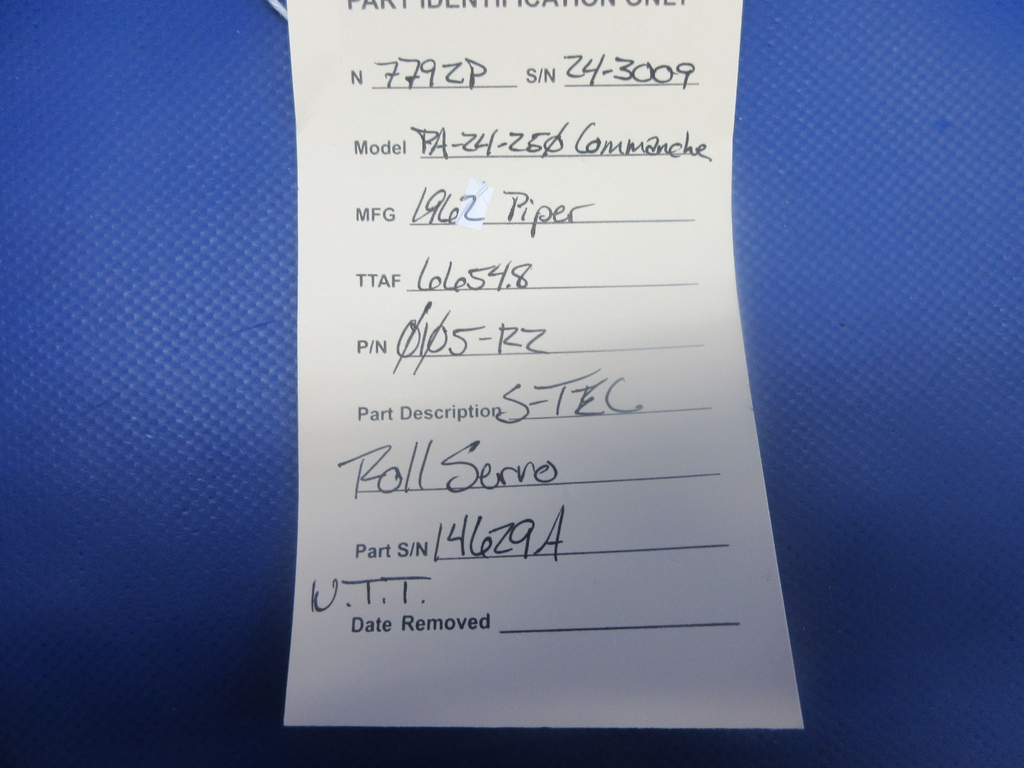 PART IDENTIFICATION ONLY
N 7792P S/N 24-3009
Model PA-24-250 Commanche
MFG 1962 Piper
TTAF 6654.8
P/N 0105-R2
Part Description S-TEC
Roll Servo
Part S/N 14629A
N.T.T.
Date Removed